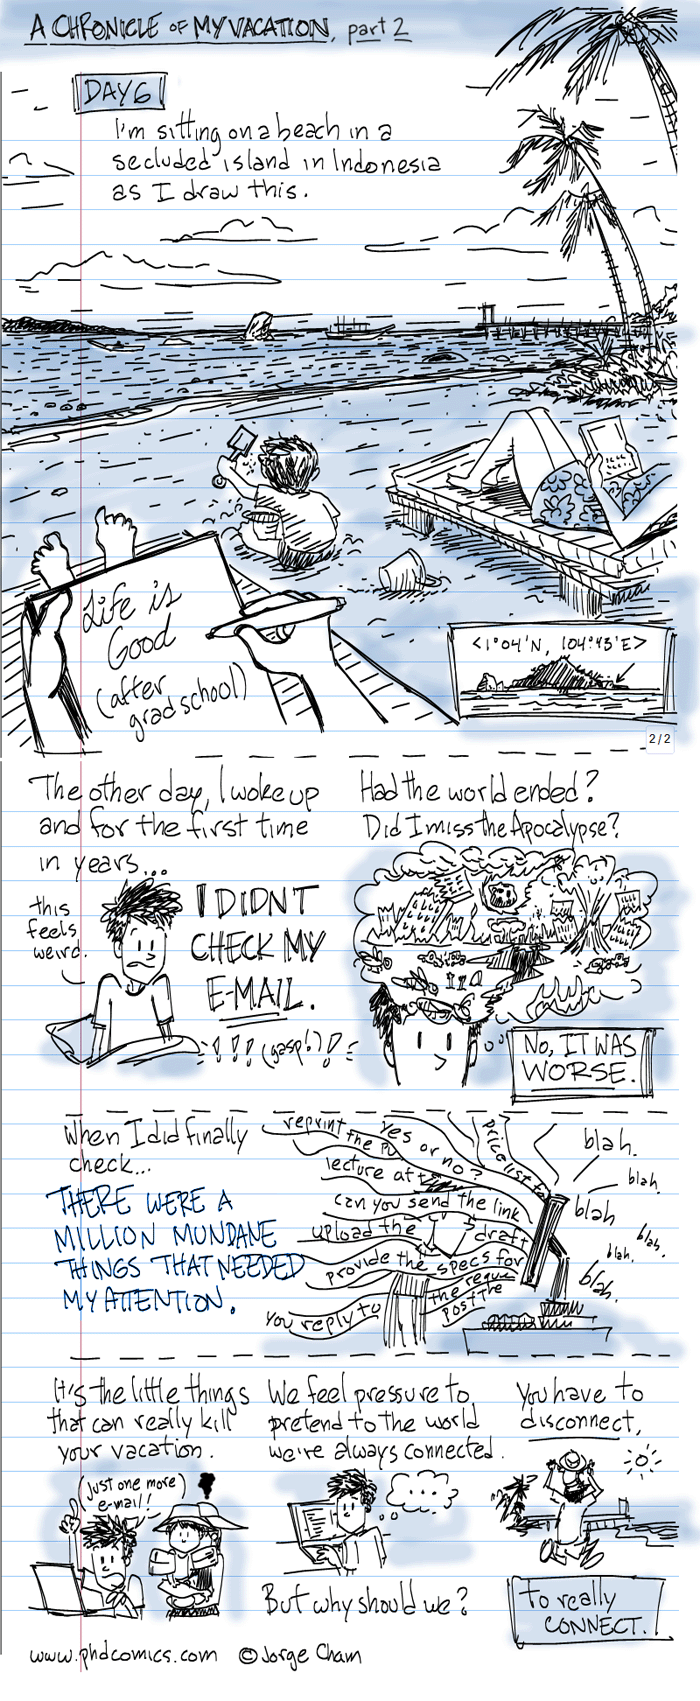 A CHRONICLE OF MY VACATION, part 2
DAY 6
I'm sitting on a beach in a
secluded island in Indonesia
as I draw this.
Life is
Good
(after
grad school)
<1°04'N, 104°43'E>
2/2
The other day, I woke up
and for the first time
in years...
this
feels
weird.
I DIDN'T
CHECK MY
E-MAIL.
!!! (gasp!) !!
Had the world ended?
Did I miss the Apocalypse?
NO, IT WAS
WORSE.
When I did finally
check...
THERE WERE A
MILLION MUNDANE
THINGS THAT NEEDED
MY ATTENTION.
reprint
the
yes or no?
price list
lecture at
can you send the link
upload the
draft
provide the specs for
the requ
post the
you reply to
blah.
blah.
blah
blah.
blah.
blah.
It's the little things
that can really kill
your vacation.
(just one more)
e-mail!!
?
We feel pressure to
pretend to the world
we're always connected.
But why should we?
You have to
disconnect,
to really
CONNECT.
www.phdcomics.com © Jorge Cham